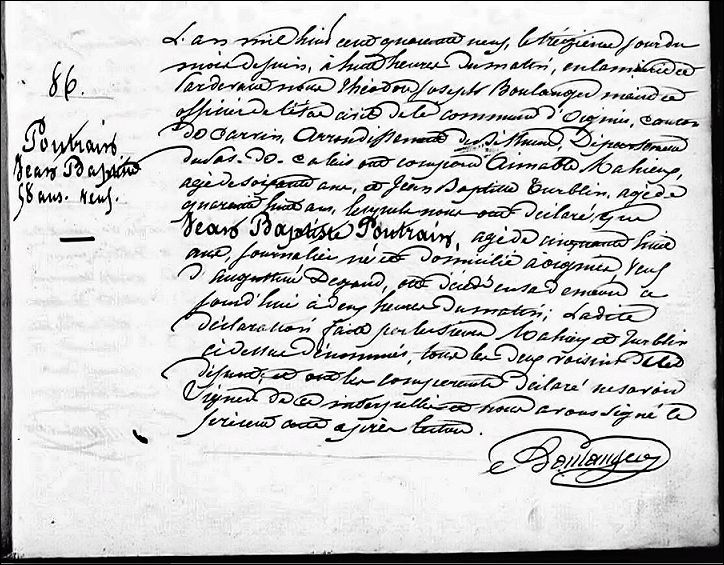 86.
Poutrain
Jean Baptiste
58 ans. veuf.
L'an mil huit cent quarante neuf, le treizième jour du
mois de juin, à huit heures du matin, en la mairie et
pardevant nous Théodore Joseph Boulanger maire et
officier de l'état civil de la commune d'Oignies, canton
de Carvin, arrondissement de Béthune, Département
du Pas-de-Calais ont comparu Aimable Mahieux,
agé de soixante ans, et Jean Baptiste Turblin, agé de
quarante huit ans, lesquels nous ont déclaré que
Jean Baptiste Poutrain, agé de cinquante huit
ans, journalier né et domicilié à Oignies veuf
d'Augustine Degand, est décédé en sa demeure ce
jourd'hui à deux heures du matin; Ladite
déclaration faite par les sieurs Mahieux et Turblin
ci-dessus dénommés, tous les deux voisins dudit
défunt, et ont les comparants déclaré ne savoir
signer de ce interpellés et nous avons signé le
présent acte après lecture.
Boulanger